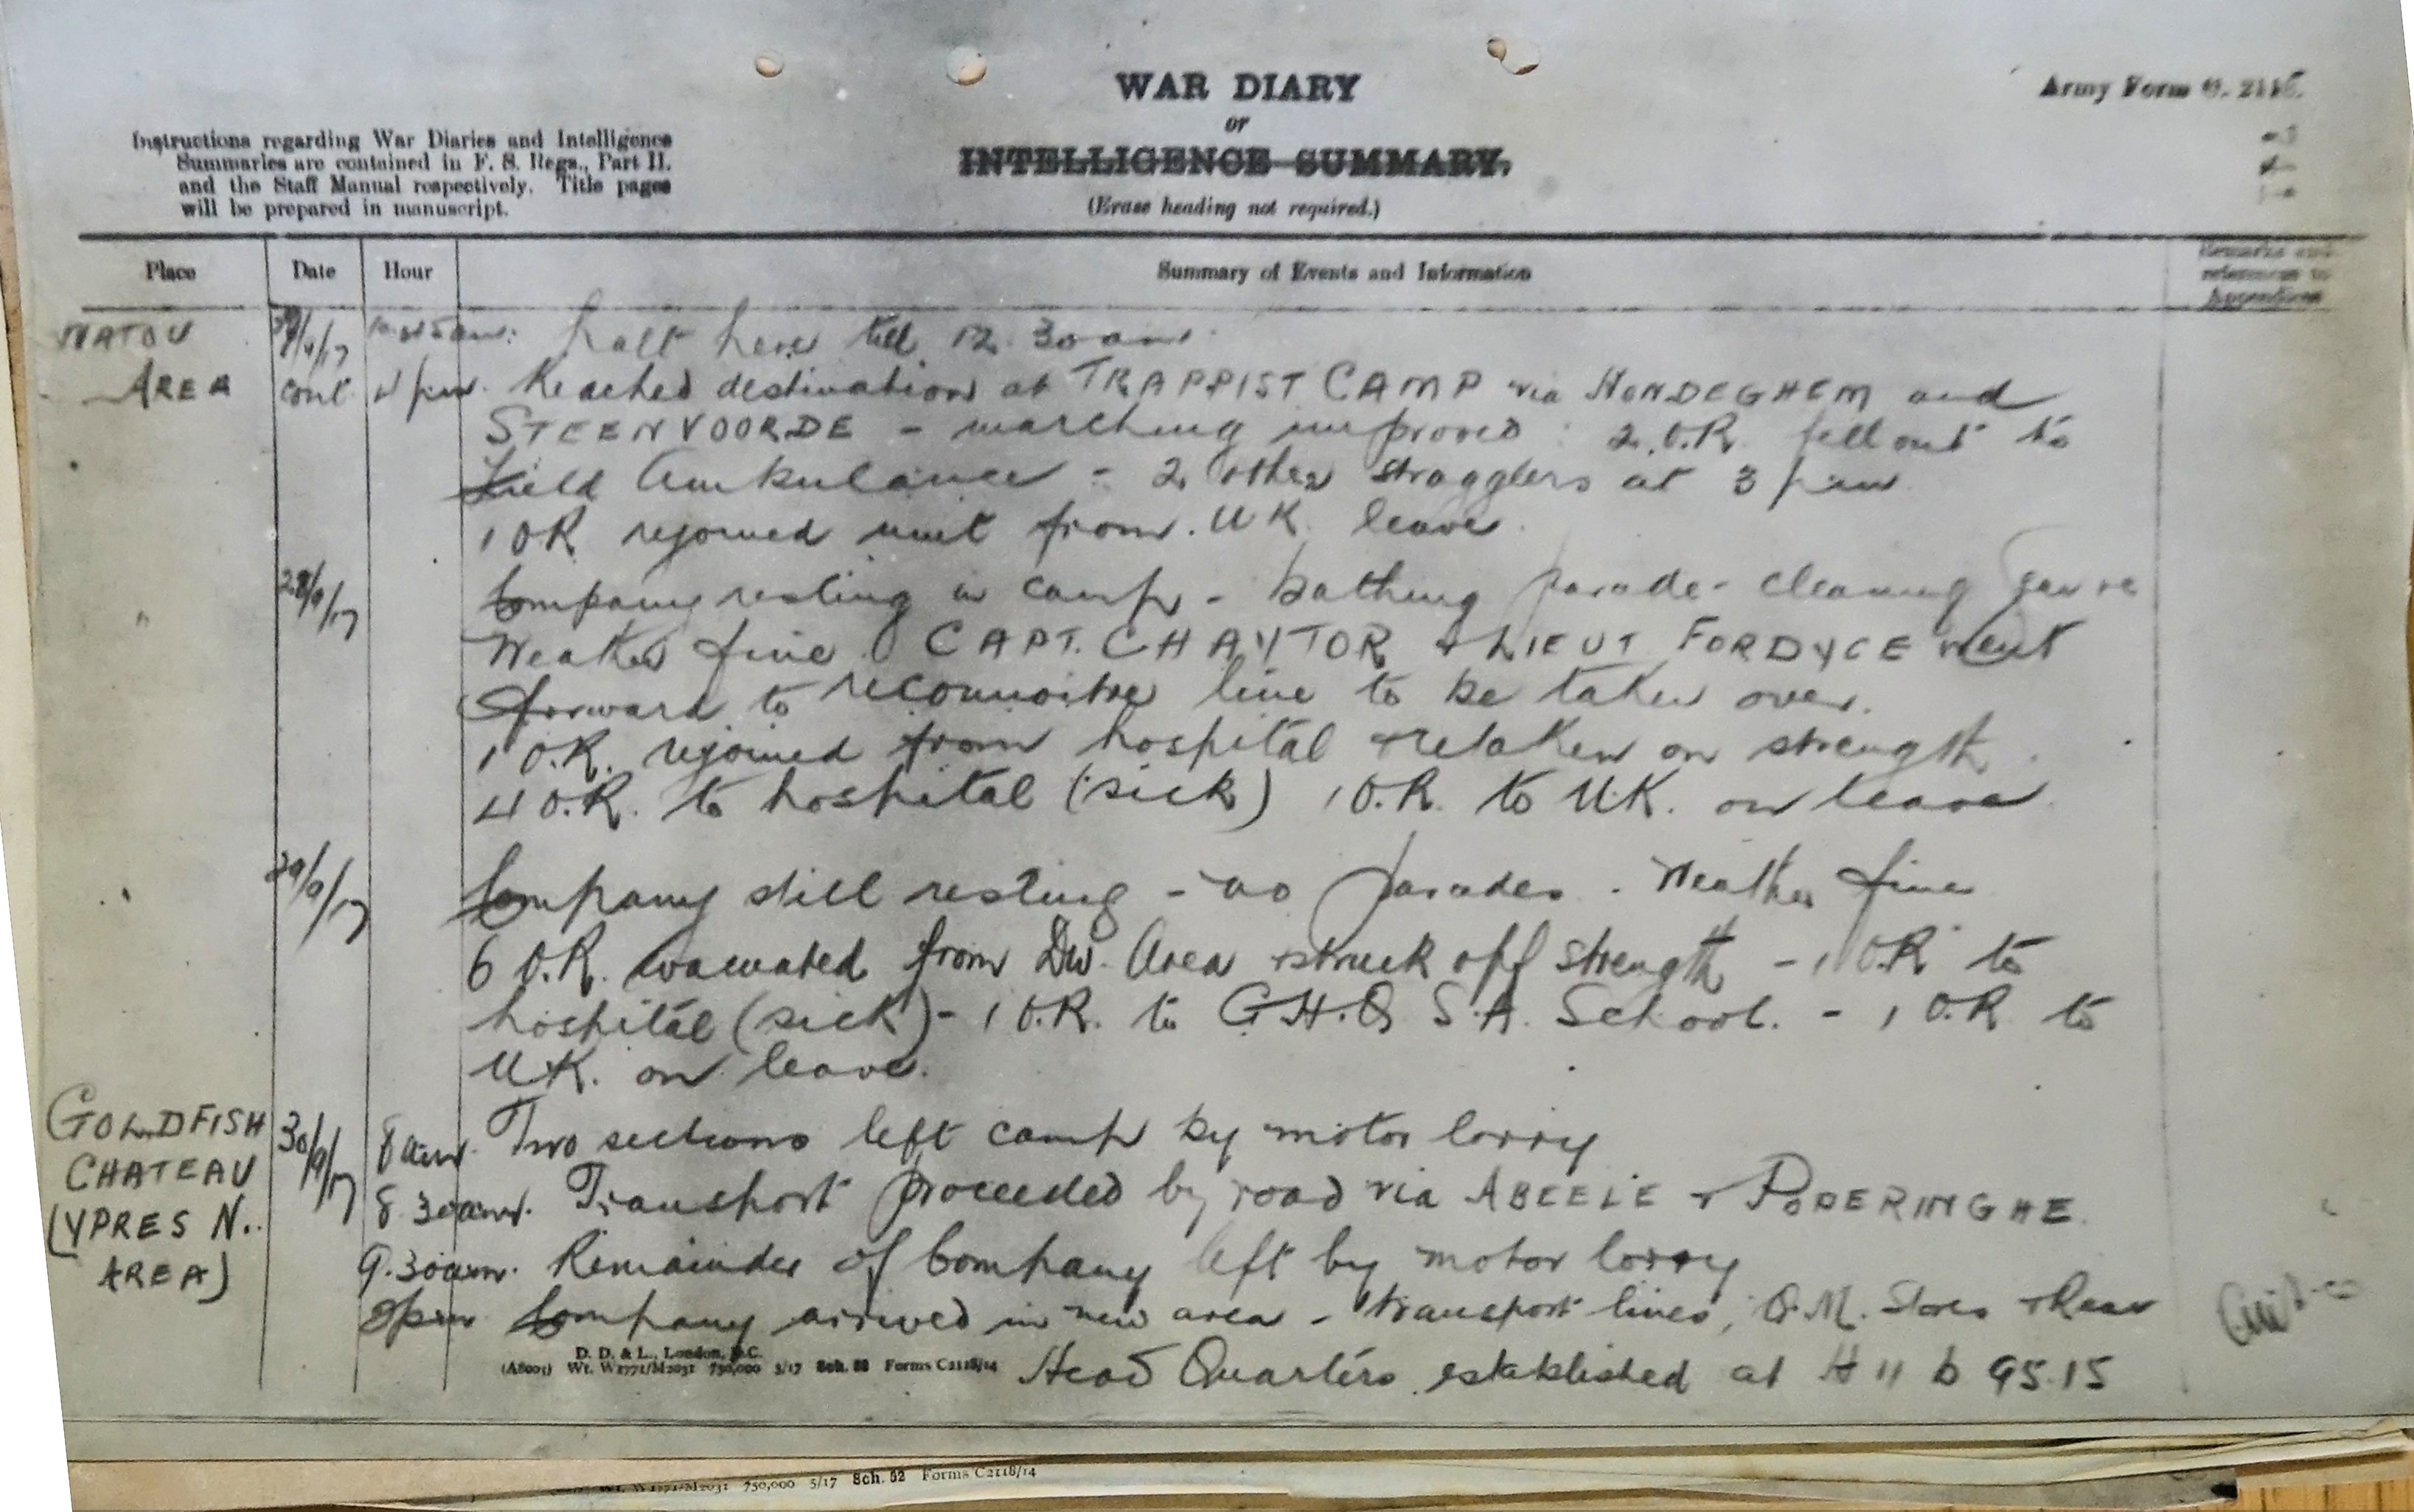 WAR DIARY
or
INTELLIGENCE SUMMARY.
(Erase heading not required.)
Army Form C. 2118.
Instructions regarding War Diaries and Intelligence
Summaries are contained in F. S. Regs., Part II.
and the Staff Manual respectively. Title pages
will be prepared in manuscript.
Place Date Hour Summary of Events and Information Remarks and
references to
Appendices
WATOU halt here till 12.30 am.
AREA cont 4 pm. Reached destination at TRAPPIST CAMP via HONDEGHEM and
STEENVOORDE - marching improved : 2 O.R. fell out to
Field Ambulance - 2 other stragglers at 3 pm
1 OR rejoined unit from U.K. leave.
" 28/9/17 Company resting in camp - bathing parade - cleaning
Weather fine. CAPT. CHAYTOR + LIEUT FORDYCE went
forward to reconnoitre line to be taken over.
1 O.R. rejoined from hospital + retaken on strength.
4 O.R. to hospital (sick) 1 O.R. to U.K. on leave.
29/9/17 Company still resting - no parades. Weather fine
6 O.R. evacuated from Div. Area + struck off strength - 1 O.R. to
hospital (sick) - 1 O.R. to G.H.Q S.A. School. - 1 O.R to
U.K. on leave.
GOLDFISH 30/9/17 8 am. Two sections left camp by motor lorry
CHATEAU 8.30am. Transport proceeded by road via ABEELE + POPERINGHE.
(YPRES N. 9.30am. Remainder of Company left by motor lorry
AREA) Company arrived in new area - transport lines, Q.M. Stores + Rear
Head Quarters established at H 11 b 95.15
D. D. & L., London, E.C.
(A8001) Wt. W1771/M2031 750,000 5/17 Sch. 52 Forms C2118/14
Wt. W1771/M2031 750,000 5/17 Sch. 52 Forms C2118/14